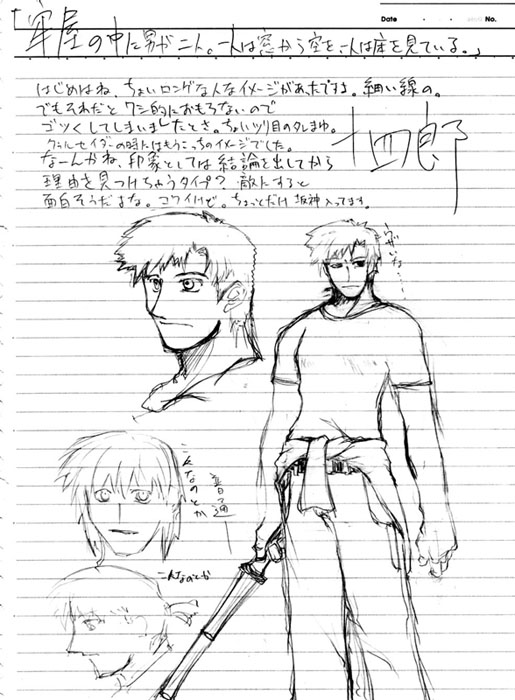 Date ・ ・ No.
「牢屋の中に男が二人。一人は窓から空を、一人は床を見ている。」
はじめはね、ちょいロンゲな人なイメージがあったですよ。細い線の。
でもそれだとワシ的におもろないので
ゴツくしてしまいましたとさ。ちょいツリ目のタレまゆ。
の時にはもうこっちのイメージでした。
なーんかね、印象としては結論を出してから
理由を見つけちゃうタイプ？敵にすると
面白そうだよな。コワイけど。ちょっとだけ阪神入ってます。
十四郎
うぜぃな…
こんなのとか
普通
こんなのとか